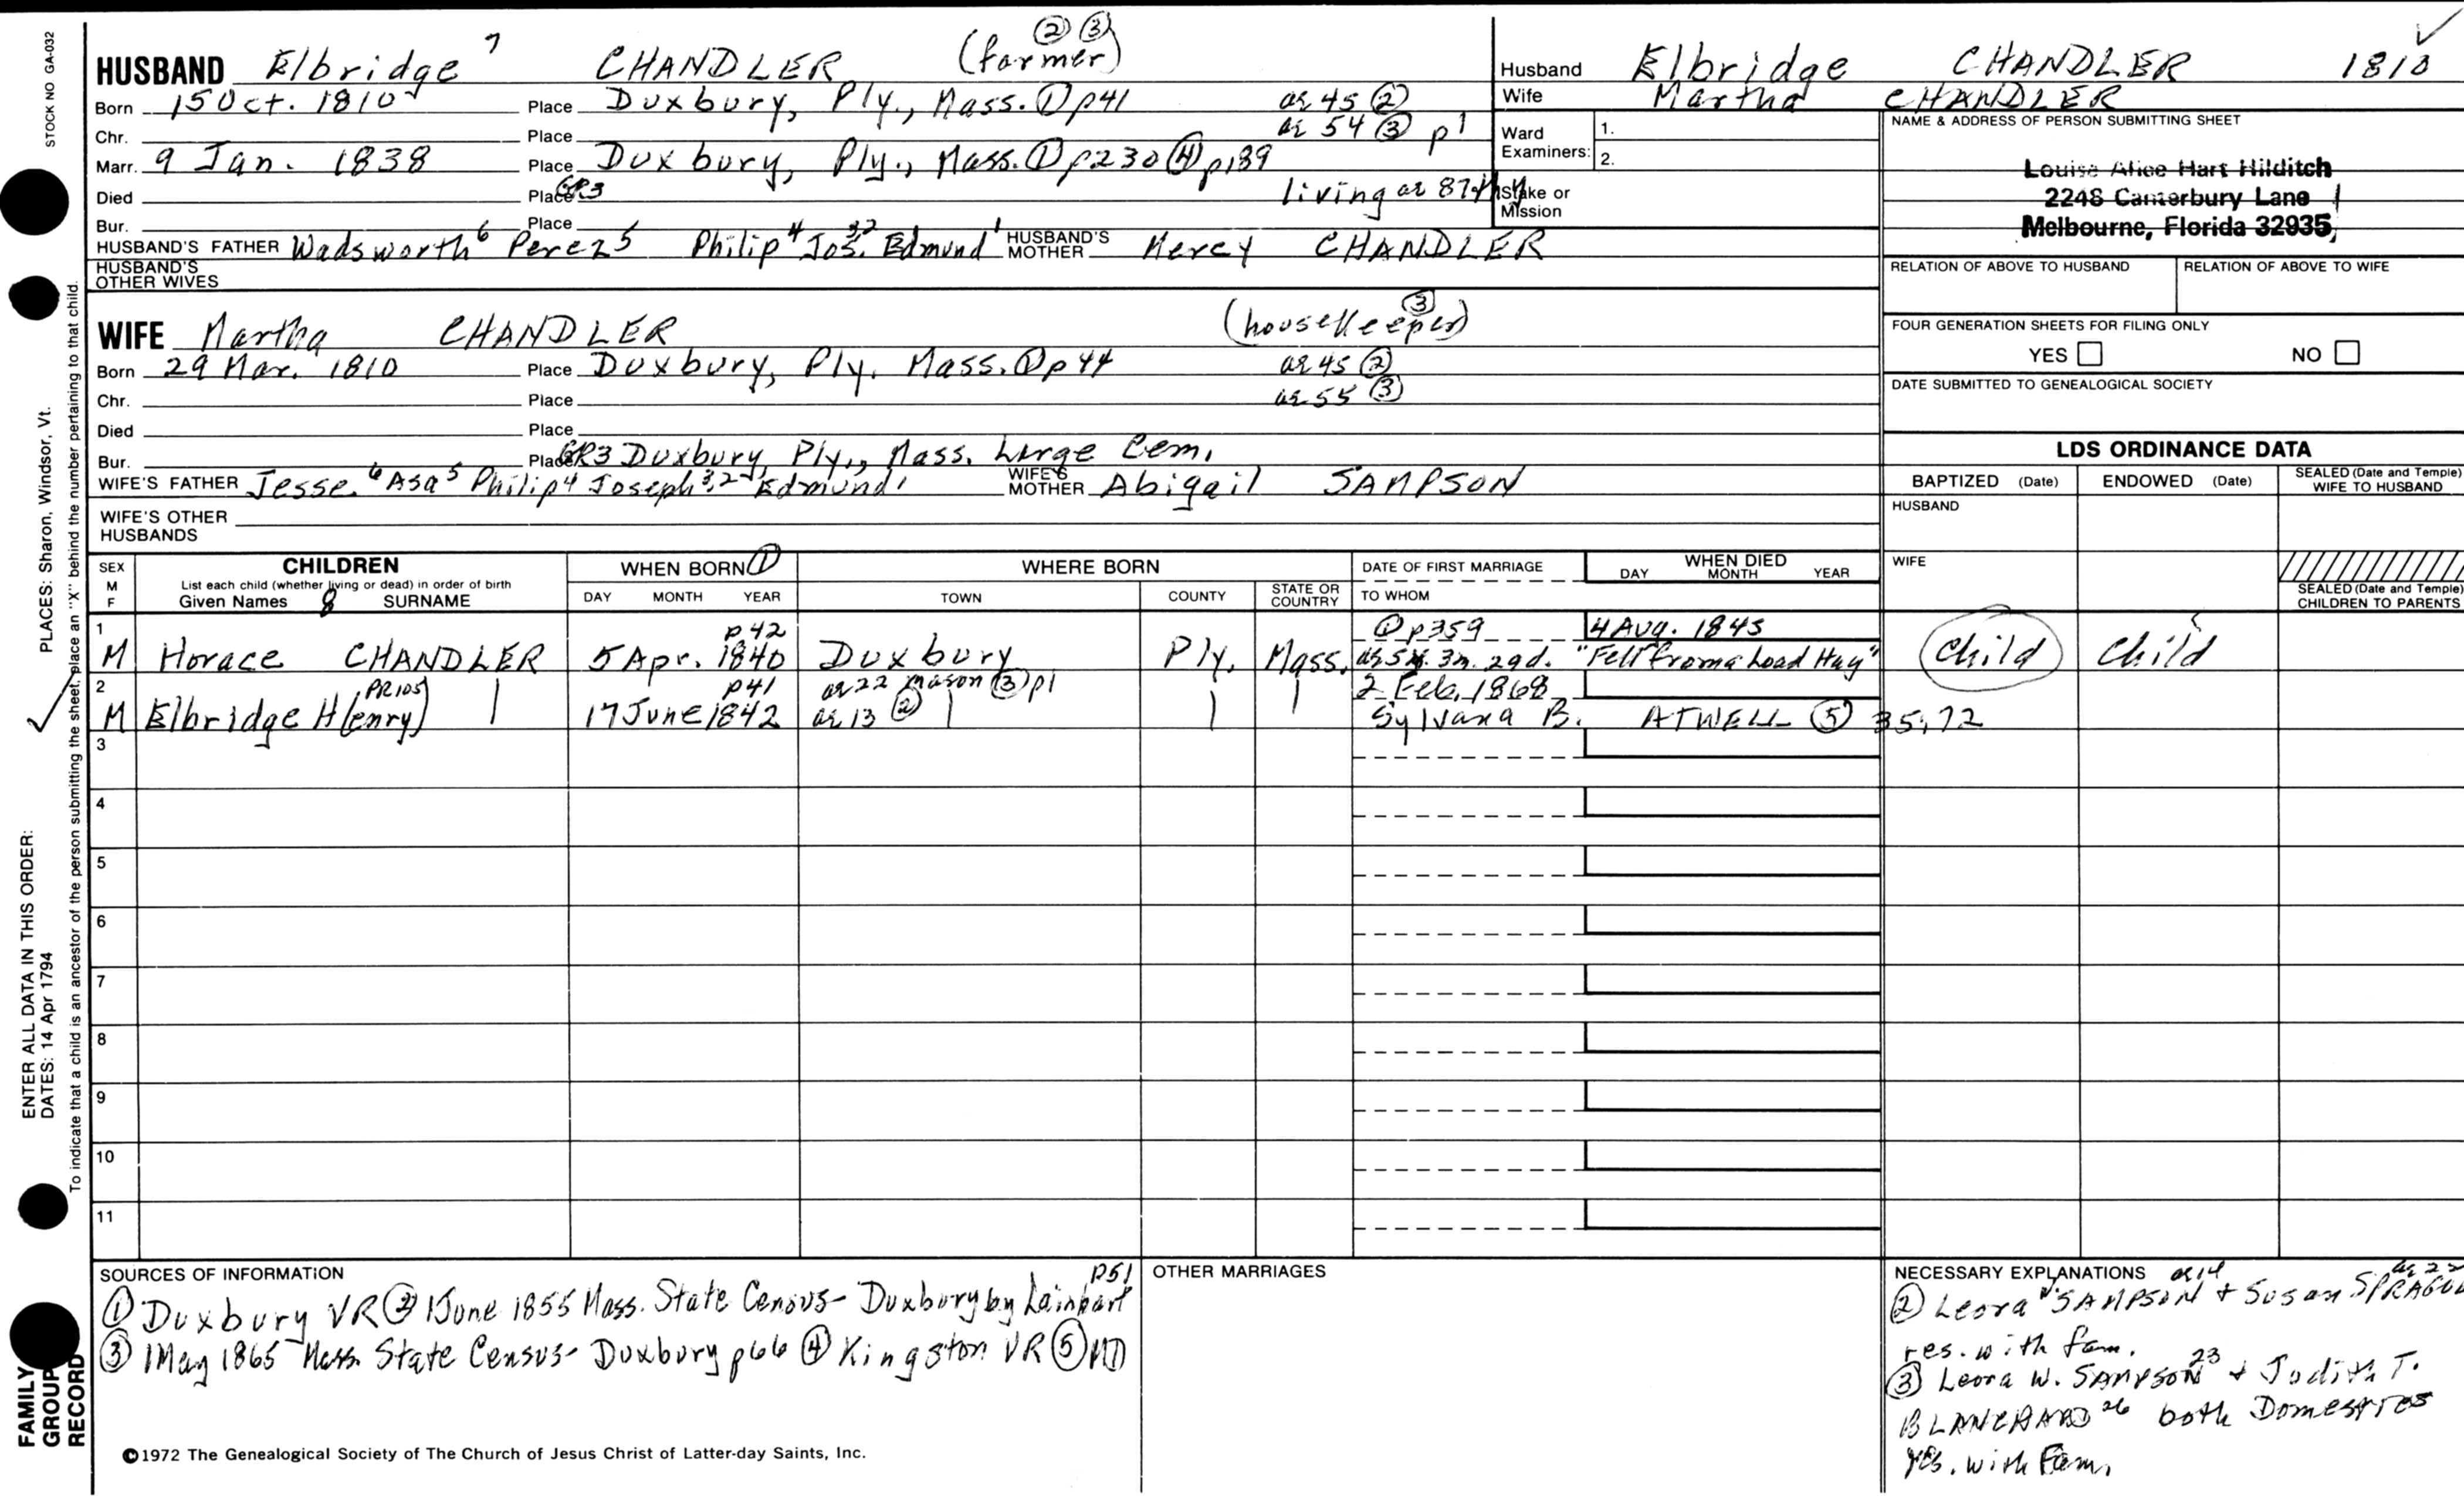 STOCK NO GA-032
PLACES: Sharon, Windsor, Vt.
ENTER ALL DATA IN THIS ORDER:
DATES: 14 Apr 1794
To indicate that a child is an ancestor of the person submitting the sheet, place an "X" behind the number pertaining to that child.
FAMILY GROUP RECORD
② ③
HUSBAND Elbridge 7 CHANDLER (farmer)
Born 15 Oct. 1810 Place Duxbury, Ply., Mass. ① p41 ae 45 ②
Chr. Place ae 54 ③ p1
Marr. 9 Jan. 1838 Place Duxbury, Ply., Mass. ① p230 ④ p189
Died Place GR3 living ae 87
Bur. Place
HUSBAND'S FATHER Wadsworth 6 Perez 5 Philip 4 Jos. 3,2 Edmund 1 HUSBAND'S MOTHER Mercy CHANDLER
HUSBAND'S OTHER WIVES
③
WIFE Martha CHANDLER (housekeeper)
Born 29 Mar. 1810 Place Duxbury, Ply. Mass. ① p44 ae 45 ②
Chr. Place ae 55 ③
Died Place
Bur. Place GR3 Duxbury, Ply., Mass. Large Cem.
WIFE'S FATHER Jesse 6 Asa 5 Philip 4 Joseph 3,2 Edmund 1 WIFE'S MOTHER Abigail SAMPSON
WIFE'S OTHER HUSBANDS
Husband Elbridge CHANDLER 1810
Wife Martha CHANDLER
Ward Examiners: 1.
2.
Stake or Mission
NAME & ADDRESS OF PERSON SUBMITTING SHEET
Louise Alice Hart Hilditch
2248 Canterbury Lane
Melbourne, Florida 32935
RELATION OF ABOVE TO HUSBAND RELATION OF ABOVE TO WIFE
FOUR GENERATION SHEETS FOR FILING ONLY
YES NO
DATE SUBMITTED TO GENEALOGICAL SOCIETY
LDS ORDINANCE DATA
BAPTIZED (Date) ENDOWED (Date) SEALED (Date and Temple) WIFE TO HUSBAND
HUSBAND
WIFE
SEALED (Date and Temple) CHILDREN TO PARENTS
SEX M F CHILDREN WHEN BORN ① WHERE BORN DATE OF FIRST MARRIAGE WHEN DIED
List each child (whether living or dead) in order of birth
Given Names 8 SURNAME DAY MONTH YEAR TOWN COUNTY STATE OR COUNTRY TO WHOM DAY MONTH YEAR
1 p42 ① p359 4 Aug. 1845
M Horace CHANDLER 5 Apr. 1840 Duxbury Ply. Mass. ae 5y. 3m. 29d. "Fell from a Load Hay" Child Child
2 PR105 p41 ae 22 mason ③ p1 2 Feb. 1868
M Elbridge H(enry) 17 June 1842 ae 13 ② Sylvana B. ATWELL ⑤ 35,72
3
4
5
6
7
8
9
10
11
SOURCES OF INFORMATION p51
① Duxbury VR ② 1 June 1855 Mass. State Census- Duxbury by Lainhart
③ 1 May 1865 Mass. State Census- Duxbury p66 ④ Kingston VR ⑤ MD
OTHER MARRIAGES
NECESSARY EXPLANATIONS ae 14 ae 22
② Leora W. SAMPSON + Susan SPRAGUE
res. with fam.
③ Leora W. SAMPSON 23 + Judith T.
BLANCHARD 26 both Domestics
res. with Fam.
©1972 The Genealogical Society of The Church of Jesus Christ of Latter-day Saints, Inc.